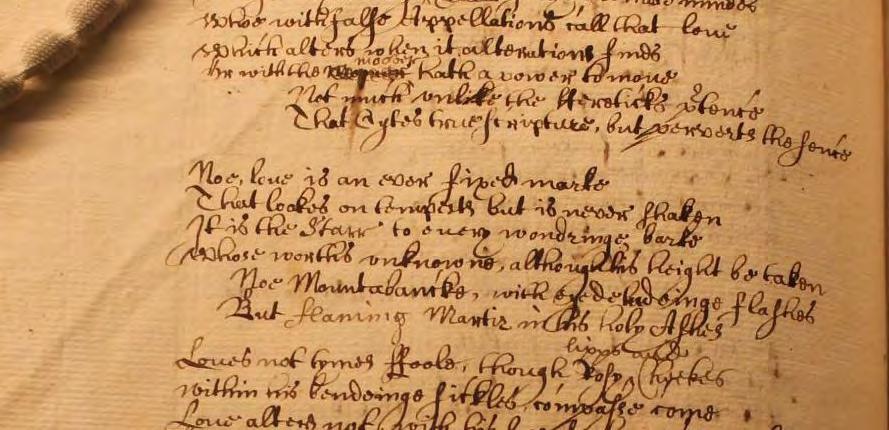 minds
Who with false Appellations call that love
Which alters when it alterations finds
Or with the mover hath a power to move
Not much unlike the Hereticks p̃tence
That Cytes true scripture, but perverts the sence
Noe, love is an ever fixed marke
That lookes on tempests but is never shaken
It is the Starr to every wondringe barke
Whose worth's unknowne, although his height be taken
Noe Mountabancke, with eye deludeinge flashes
But flameing Martir in his holy Ashes
Loves not tymes Foole, though Rosy lipps and Cheekes
within his bendeinge sickles, compasse come
Love alters not with his